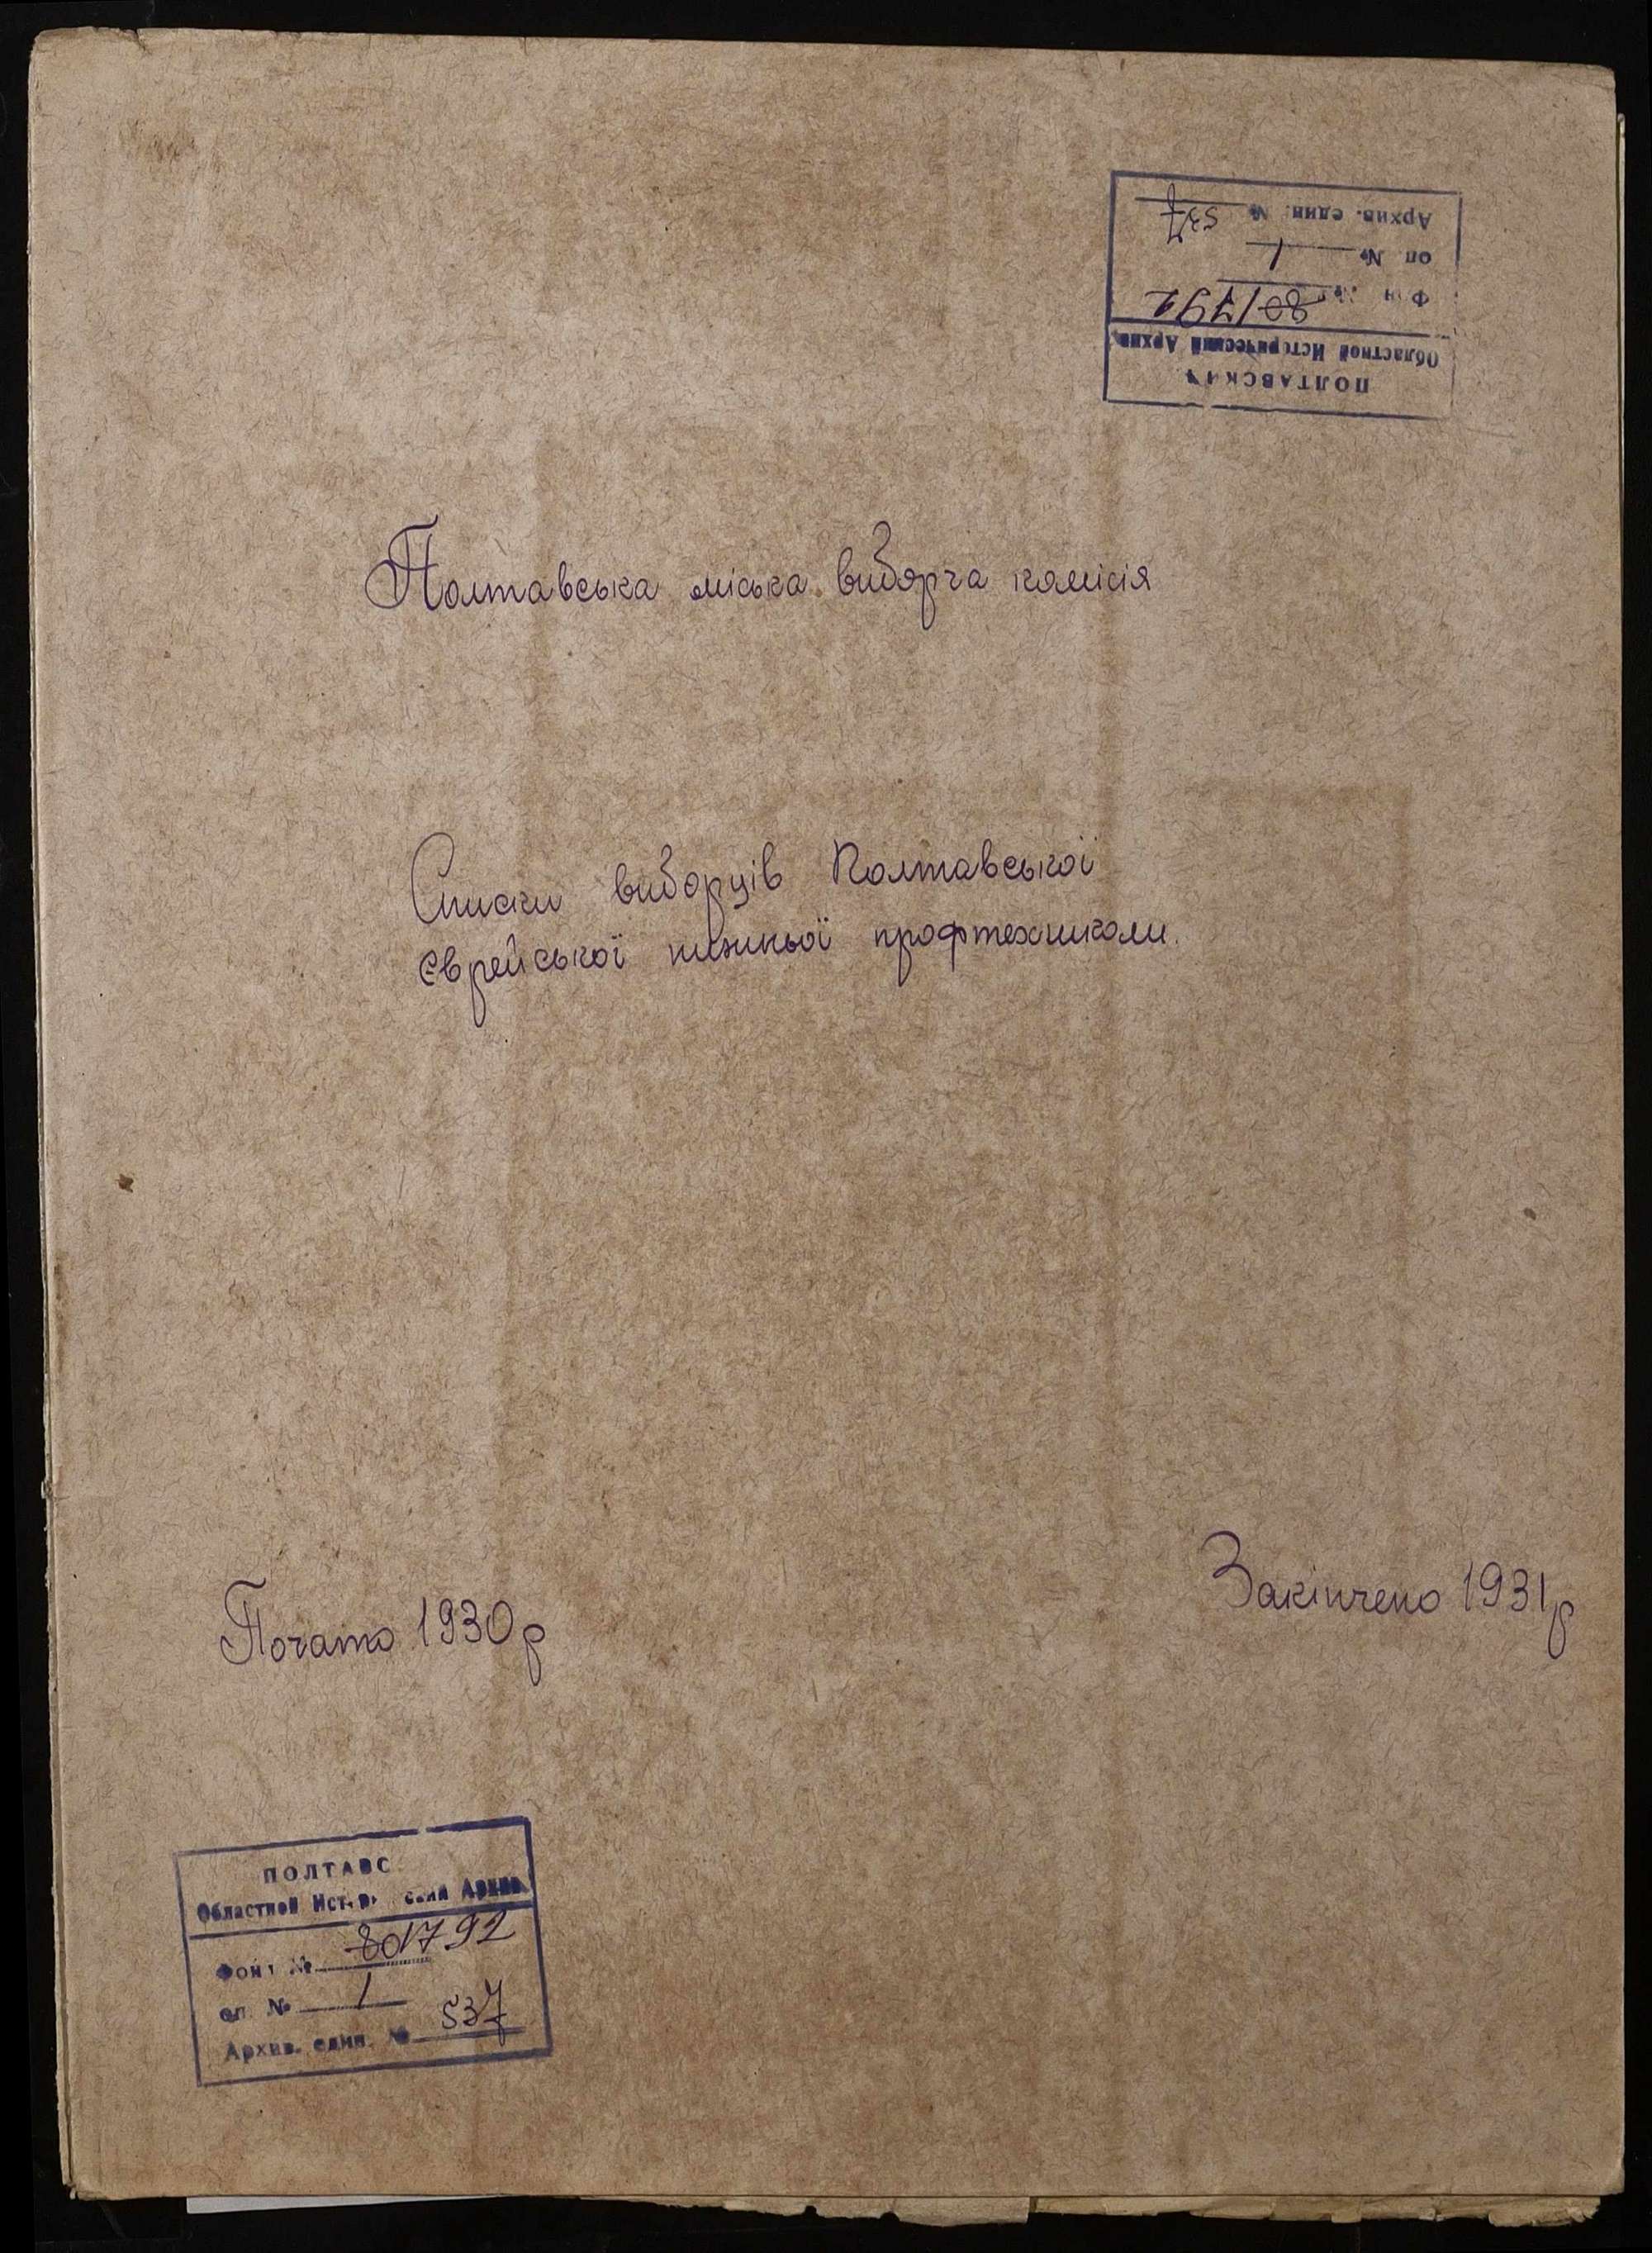 ПОЛТАВСКИЙ
Областной Исторический Архив
Фон № 80 1792
оп. № 1
Архив. един. № 537
Полтавська міська виборча комісія
Списки виборців Полтавської
єврейської нижньої профтехшколи.
Почато 1930 р
Закінчено 1931 р
ПОЛТАВС
Областной Архив
Фонд № 80 1792
оп. № 1
Архив. един. № 537